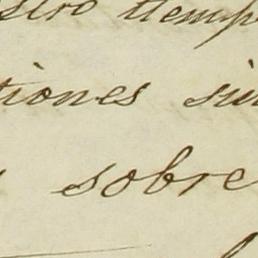 stro tiemp
tiones sin
sobre